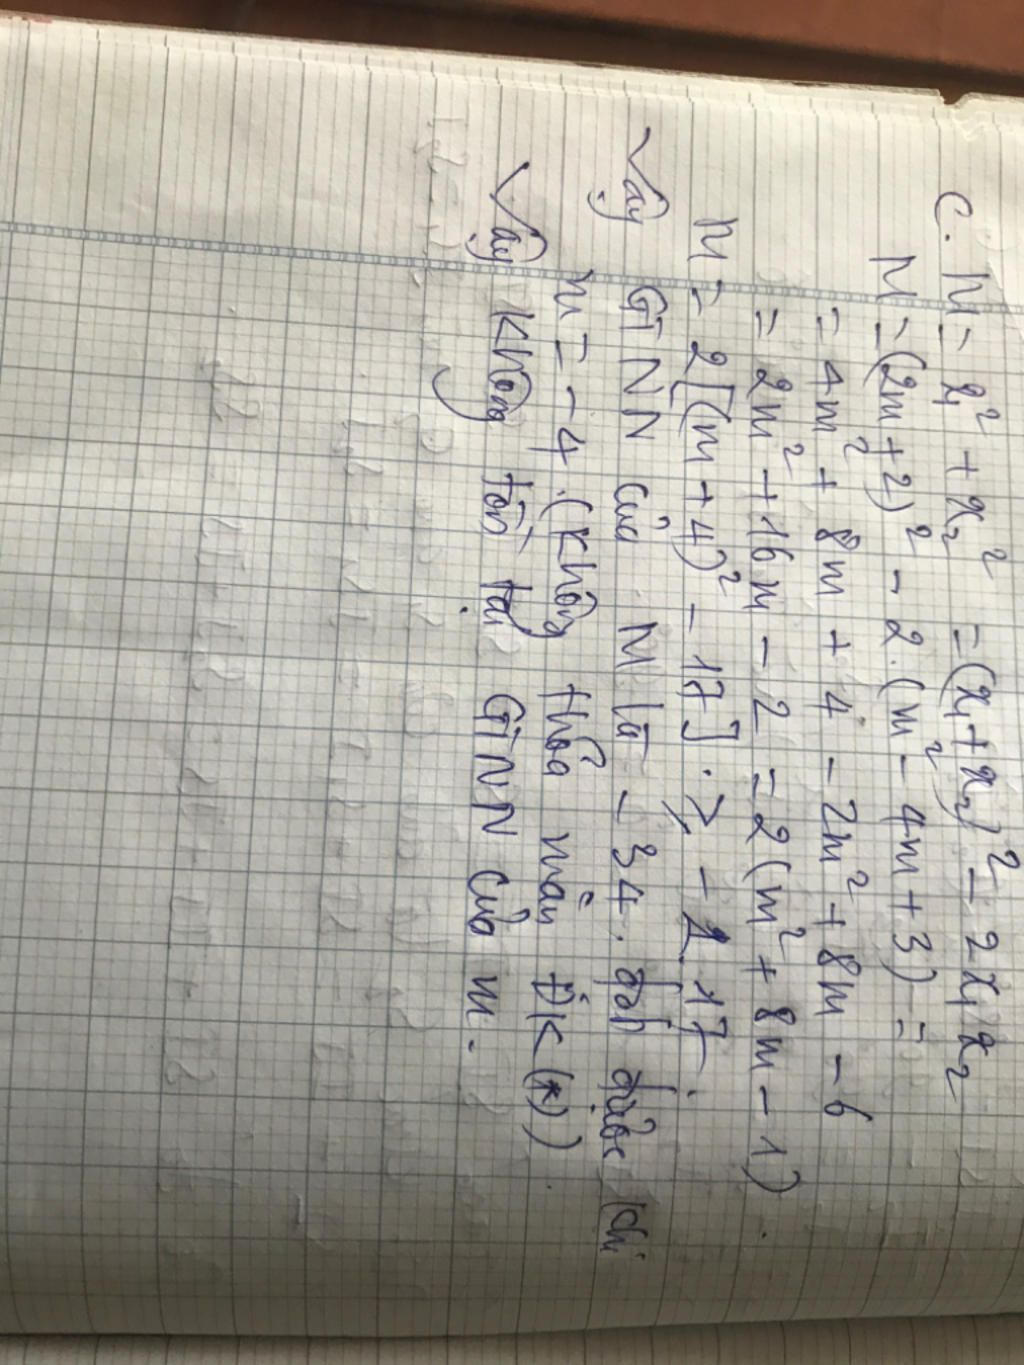 C. M = x₁² + x₂² = (x₁ + x₂)² - 2x₁x₂
M = (2m + 2)² - 2.(m² - 4m + 3) =
= 4m² + 8m + 4 - 2m² + 8m - 6
= 2m² + 16m - 2 = 2(m² + 8m - 1).
M = 2[(m + 4)² - 17] ≥ - 2.17.
Vậy GTNN của M là - 34. đạt được khi
m = - 4. (không thoả mãn ĐK (*))
Vậy không tồn tại GTNN của M.